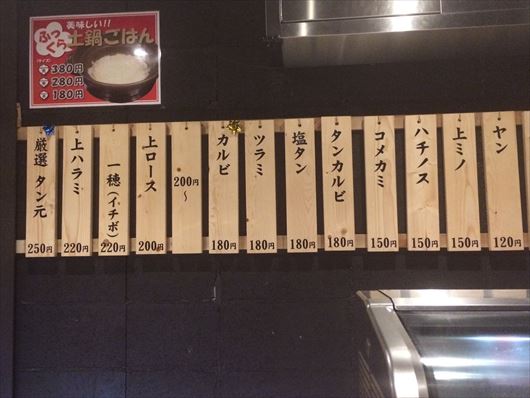 美味しい!!
ふっくら
土鍋ごはん
(サイズ)
大 380円
中 280円
小 180円
厳選 タン元
250円
上ハラミ
220円
一穂(イチボ)
220円
上ロース
200円
200円
〜
カルビ
180円
ツラミ
180円
塩タン
180円
タンカルビ
180円
コメカミ
150円
ハチノス
150円
上ミノ
150円
ヤン
120円